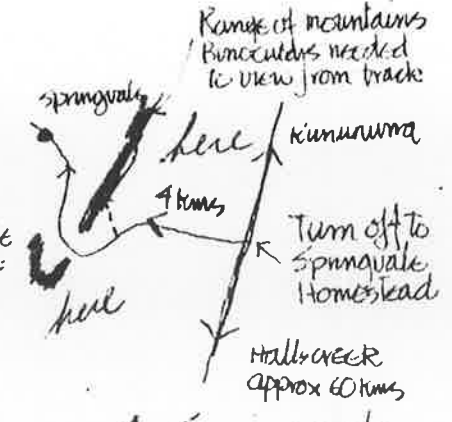 Range of mountains
Binoculars needed
to view from track
Springvale
here
Kununurra
4 kms
Turn off to
Springvale
Homestead
here
Halls creek
approx 60 kms